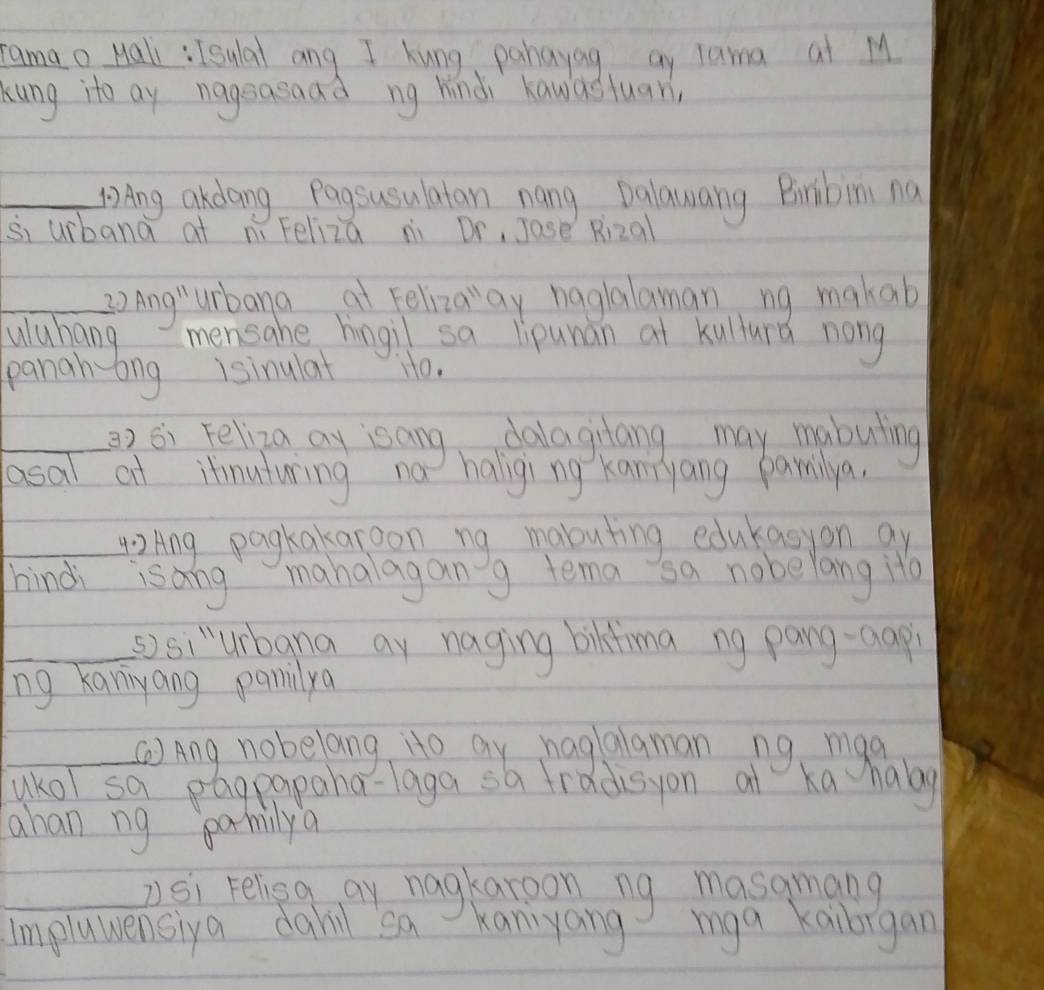 Tama o Mali : Isulat ang I kung pahayag ay Tama at M
kung ito ay nagsasaad ng hindi kawastuan,
1.) Ang akdang Pagsusulatan nang Dalawang Binibini na
si urbana at ni Feliza ni Dr. Jose Rizal
2.) Ang "urbana at Feliza" ay naglalaman ng makab
uluhang mensahe hingil sa lipunan at kultura nong
panah-ong isinulat ito.
3) Si Feliza ay isang dalagitang may mabuting
asal at itinuturing na haligi ng kaniyang pamilya.
4.) Ang pagkakaroon ng mabuting edukasyon ay
hindi isang mahalagan g tema sa nobelang ito
5) si "urbana ay naging biktima ng pang-aapi
ng kaniyang pamilya
6) Ang nobelang ito ay naglalaman ng mga
ukol sa pagpapaha-laga sa tradisyon at ka halag
ahan ng pamilya
7) Si Felisa ay nagkaroon ng masamang
impluwensiya dahil sa kaniyang mga kaibigan